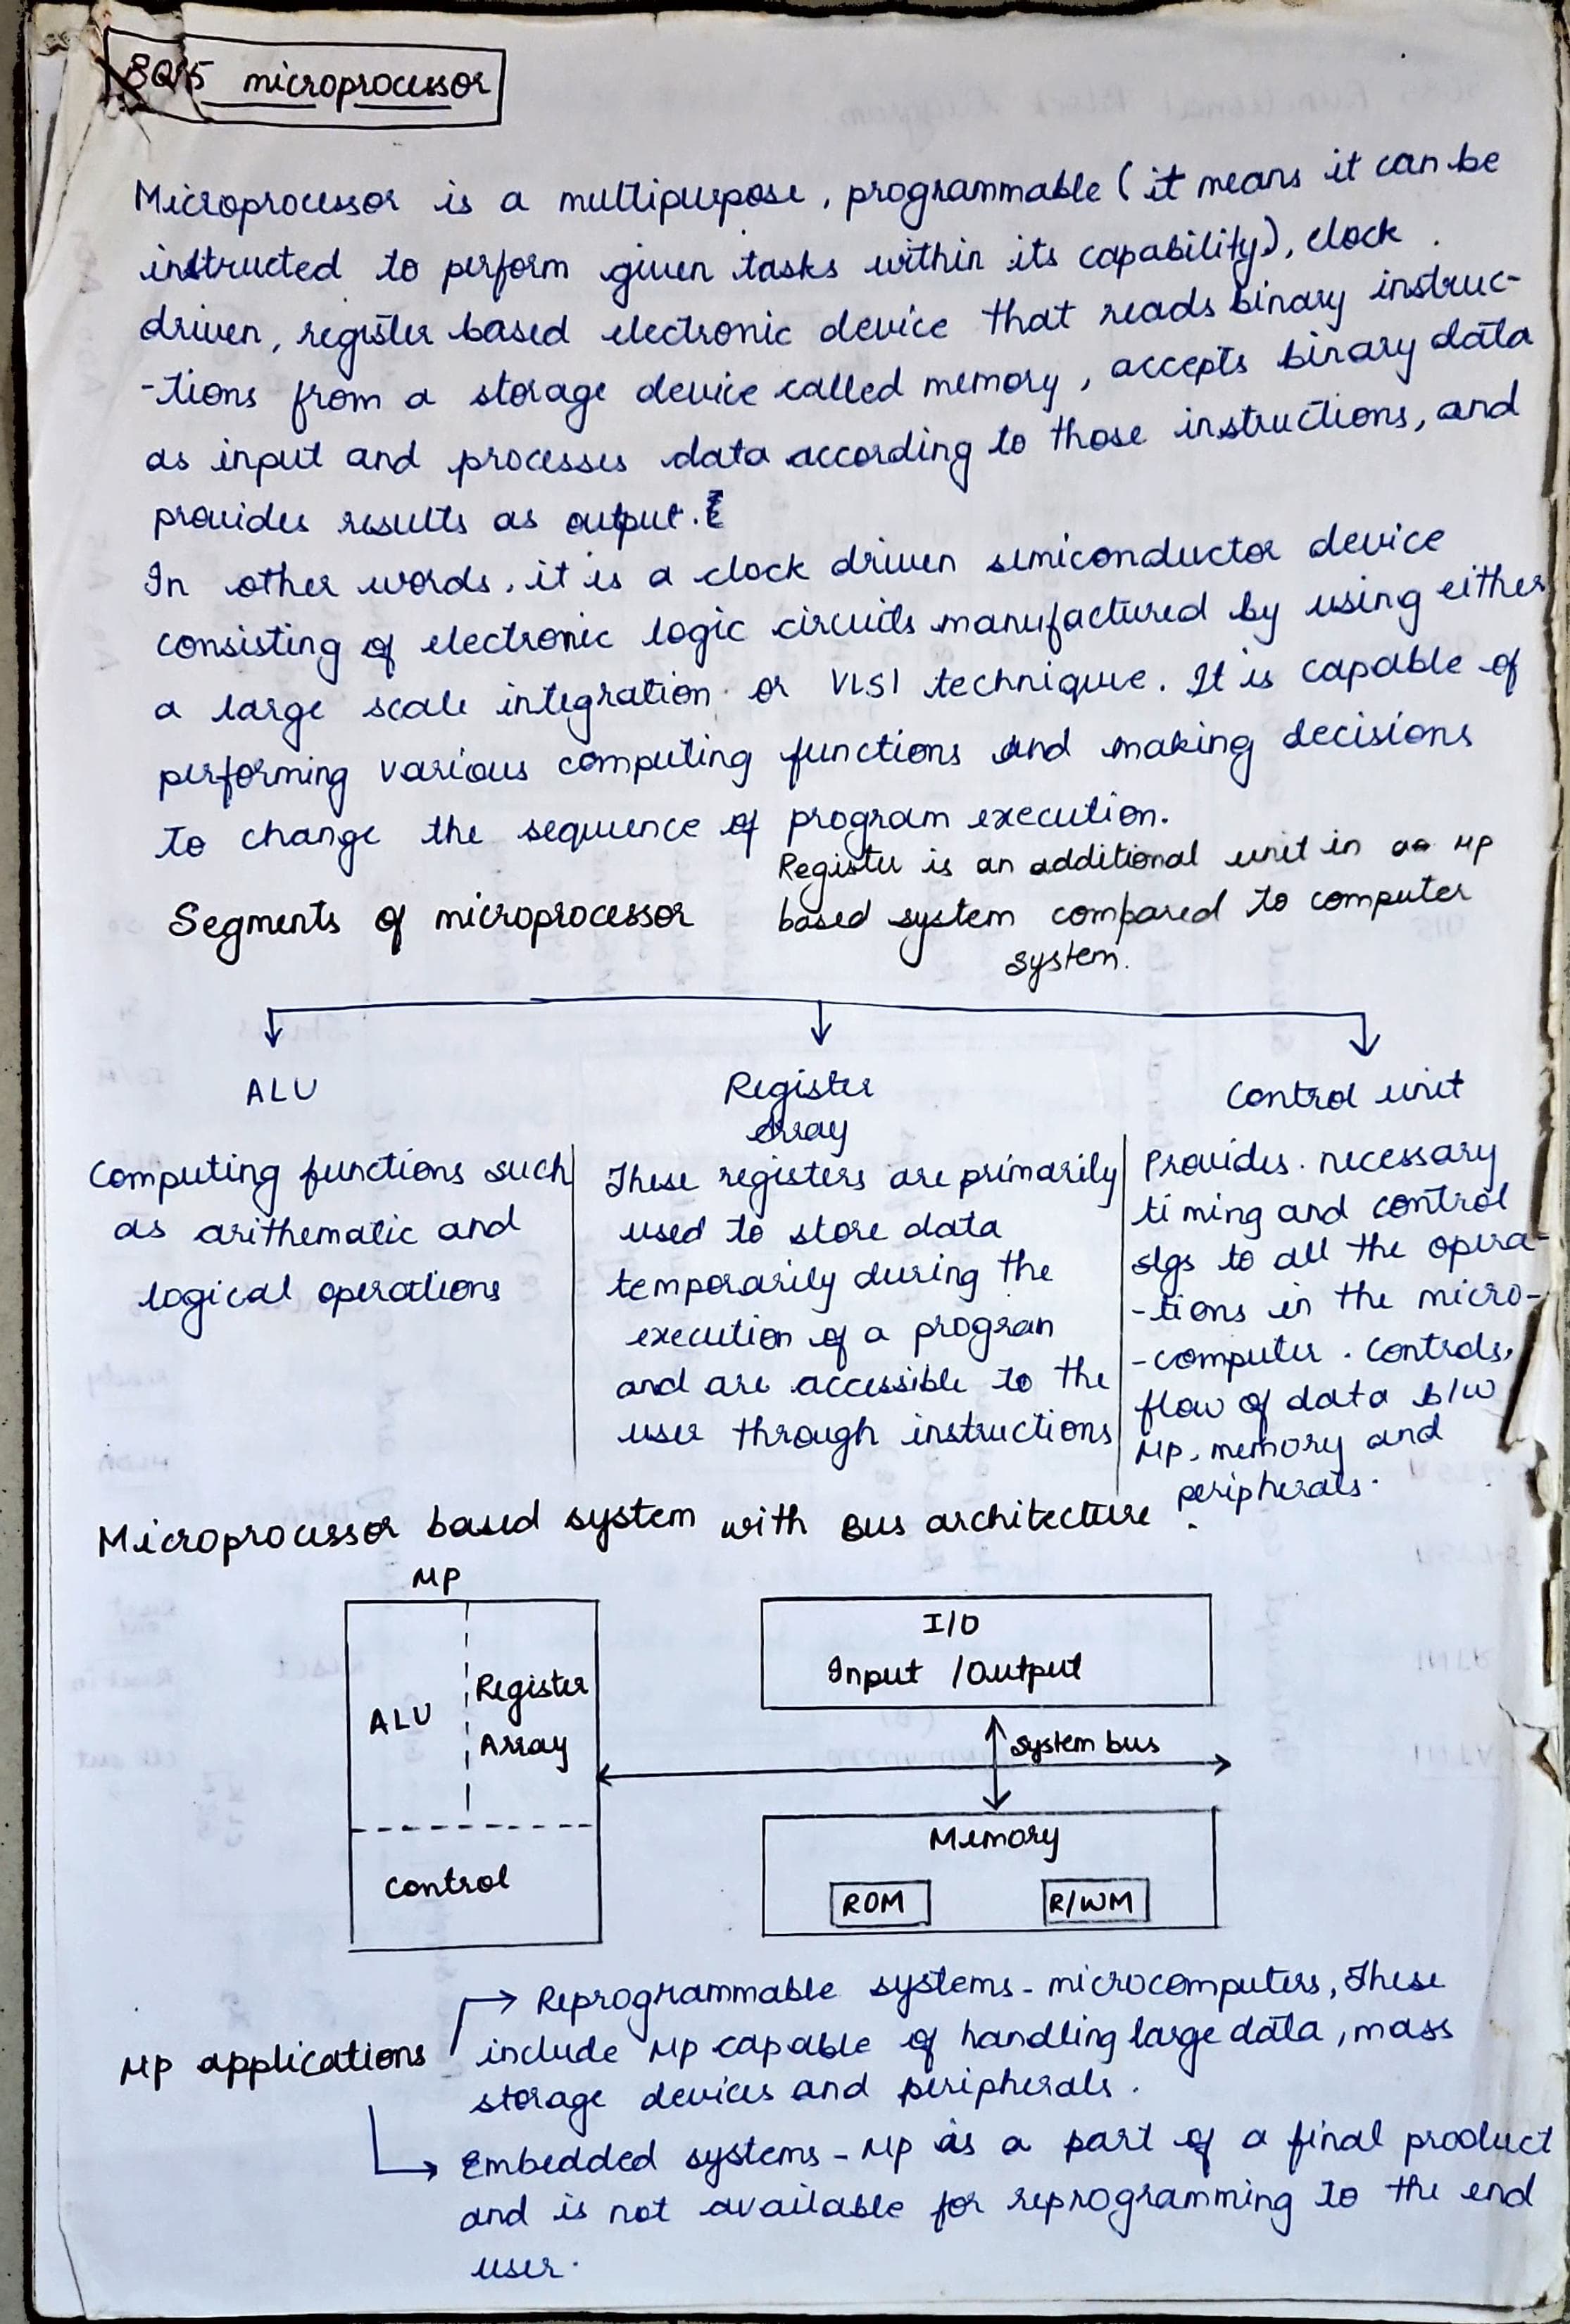 8085 microprocessor
Microprocessor is a multipurpose, programmable (it means it can be
instructed to perform given tasks within its capability), clock
driven, register based electronic device that reads binary instruc-
-tions from a storage device called memory, accepts binary data
as input and processes data according to those instructions, and
provides results as output.
In other words, it is a clock driven semiconductor device
consisting of electronic logic circuits manufactured by using either
a large scale integration or VLSI technique. It is capable of
performing various computing functions and making decisions
to change the sequence of program execution.
Register is an additional unit in a μp
based system compared to computer
system.
Segments of microprocessor
ALU
Computing functions such
as arithematic and
logical operations
Register
Array
These registers are primarily
used to store data
temporarily during the
execution of a program
and are accessible to the
user through instructions
Control unit
Provides necessary
timing and control
slgs to all the opera-
-tions in the micro-
-computer. Controls
flow of data b/w
μp, memory and
peripherals.
Microprocessor based system with Bus architecture
μp
ALU
Register
Array
control
I/O
Input /Output
system bus
Memory
ROM
R/WM
μp applications
→ Reprogrammable systems - microcomputers, These
include μp capable of handling large data, mass
storage devices and peripherals.
→ Embedded systems - μp is a part of a final product
and is not available for reprogramming to the end
user.